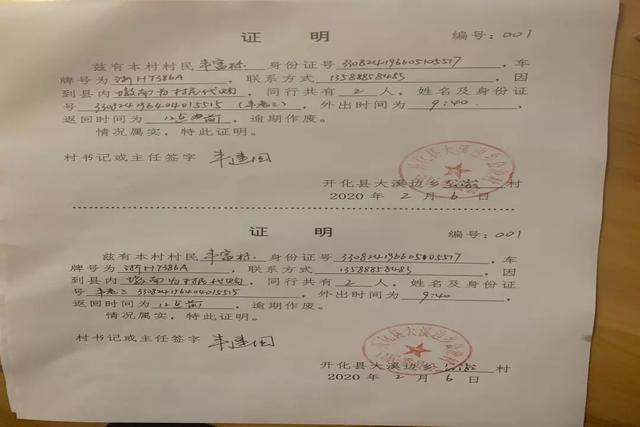 证 明 编号:001
兹有本村村民 丰富标 身份证号 330824196605105517,车
牌号为 浙H7386A,联系方式 13588858483,因
到县内 为村民代购,同行共有 2 人,姓名及身份证
号 330824196404015515 (丰老二),外出时间为 9:40.
返回时间为 12点 前,逾期作废。
情况属实,特此证明。
村书记或主任签字
开化县大溪边乡 村
2020 年 2 月 6 日
证 明 编号:001
兹有本村村民 丰富标 身份证号 330824196605105517,车
牌号为 浙H7386A,联系方式 13588858483,因
到县内 为村民代购,同行共有 2 人,姓名及身份证
号 丰老二 330824196404015515,外出时间为 9:40
返回时间为 12点前,逾期作废。
情况属实,特此证明。
村书记或主任签字
开化县大溪边乡 村
2020 年 2 月 6 日